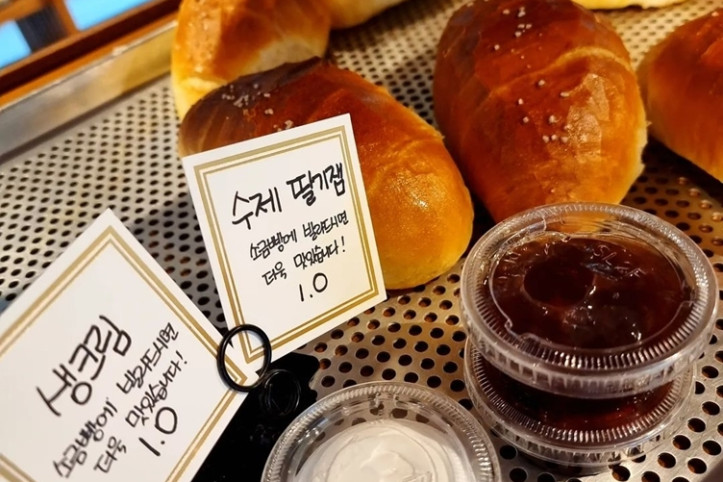 수제 딸기잼
소금빵에 발라드시면
더욱 맛있습니다!
1.0
생크림
소금빵에 발라드시면
더욱 맛있습니다!
1.0